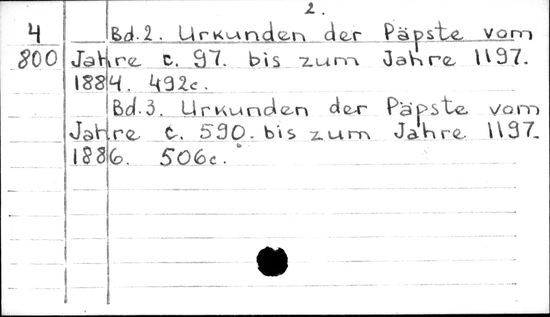 2.
4 Bd.2. Urkunden der Päpste vom
800 Jahre c. 97. bis zum Jahre 1197.
1884. 492c.
Bd.3. Urkunden der Päpste vom
Jahre c. 590. bis zum Jahre 1197.
1886. 506c.